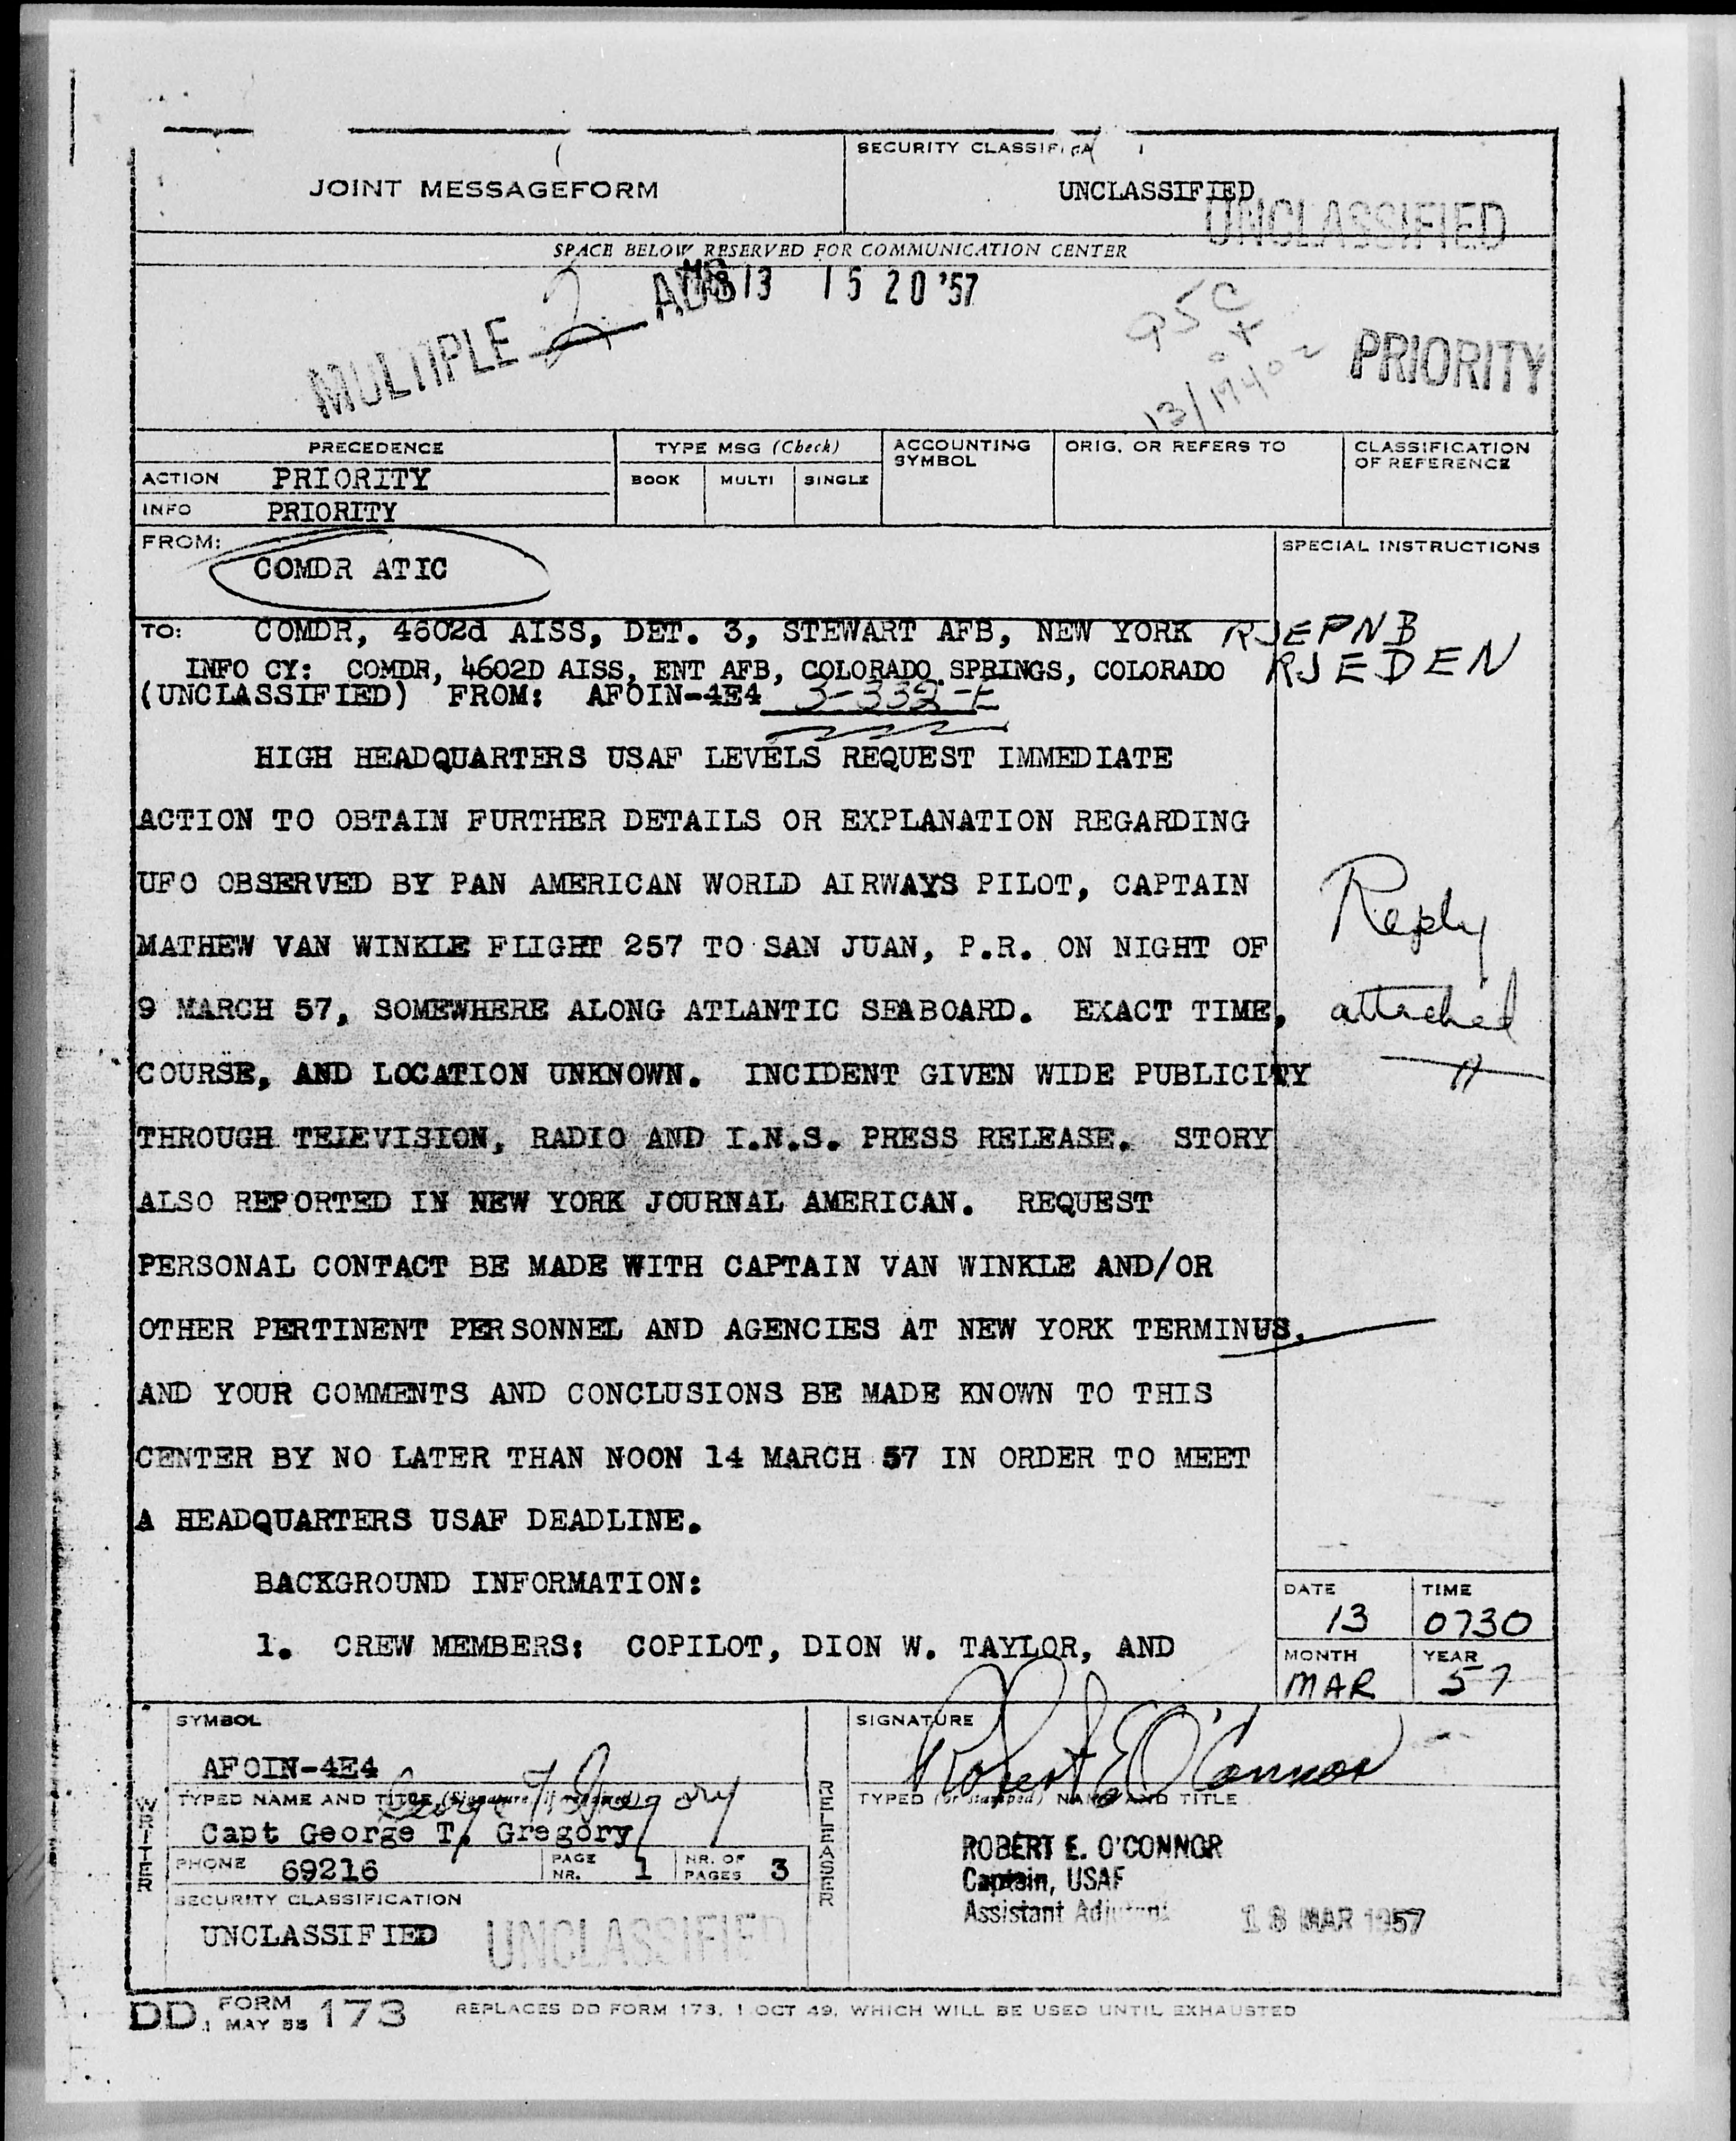 SECURITY CLASSIFICA
JOINT MESSAGEFORM
UNCLASSIFIED
UNCLASSIFIED
SPACE BELOW RESERVED FOR COMMUNICATION CENTER
13 15 20 '57
MULTIPLE 2
PRIORITY
PRECEDENCE
TYPE MSG (Check)
ACCOUNTING SYMBOL
ORIG. OR REFERS TO
CLASSIFICATION OF REFERENCE
ACTION PRIORITY
BOOK MULTI SINGLE
INFO PRIORITY
FROM:
COMDR ATIC
SPECIAL INSTRUCTIONS
TO: COMDR, 4602d AISS, DET. 3, STEWART AFB, NEW YORK RJEPNB
INFO CY: COMDR, 4602D AISS, ENT AFB, COLORADO SPRINGS, COLORADO RJEDEN
(UNCLASSIFIED) FROM: AFOIN-4E4 3-332-E
HIGH HEADQUARTERS USAF LEVELS REQUEST IMMEDIATE
ACTION TO OBTAIN FURTHER DETAILS OR EXPLANATION REGARDING
UFO OBSERVED BY PAN AMERICAN WORLD AIRWAYS PILOT, CAPTAIN
MATHEW VAN WINKLE FLIGHT 257 TO SAN JUAN, P.R. ON NIGHT OF
9 MARCH 57, SOMEWHERE ALONG ATLANTIC SEABOARD. EXACT TIME,
COURSE, AND LOCATION UNKNOWN. INCIDENT GIVEN WIDE PUBLICITY
THROUGH TELEVISION, RADIO AND I.N.S. PRESS RELEASE. STORY
ALSO REPORTED IN NEW YORK JOURNAL AMERICAN. REQUEST
PERSONAL CONTACT BE MADE WITH CAPTAIN VAN WINKLE AND/OR
OTHER PERTINENT PERSONNEL AND AGENCIES AT NEW YORK TERMINUS,
AND YOUR COMMENTS AND CONCLUSIONS BE MADE KNOWN TO THIS
CENTER BY NO LATER THAN NOON 14 MARCH 57 IN ORDER TO MEET
A HEADQUARTERS USAF DEADLINE.
Reply
attached
BACKGROUND INFORMATION:
1. CREW MEMBERS: COPILOT, DION W. TAYLOR, AND
DATE 13
TIME 0730
MONTH MAR
YEAR 57
WRITER
SYMBOL
AFOIN-4E4
George T. Gregory
TYPED NAME AND TITLE (Signature, if required)
Capt George T. Gregory
PHONE 69216
PAGE NR. 1
NR. OF PAGES 3
SECURITY CLASSIFICATION
UNCLASSIFIED
UNCLASSIFIED
RELEASER
SIGNATURE
Robert E O'Connor
TYPED (or stamped) NAME AND TITLE
ROBERT E. O'CONNOR
Captain, USAF
Assistant Adjutant
13 MAR 1957
DD FORM 1 MAY 55 173
REPLACES DD FORM 173, 1 OCT 49, WHICH WILL BE USED UNTIL EXHAUSTED